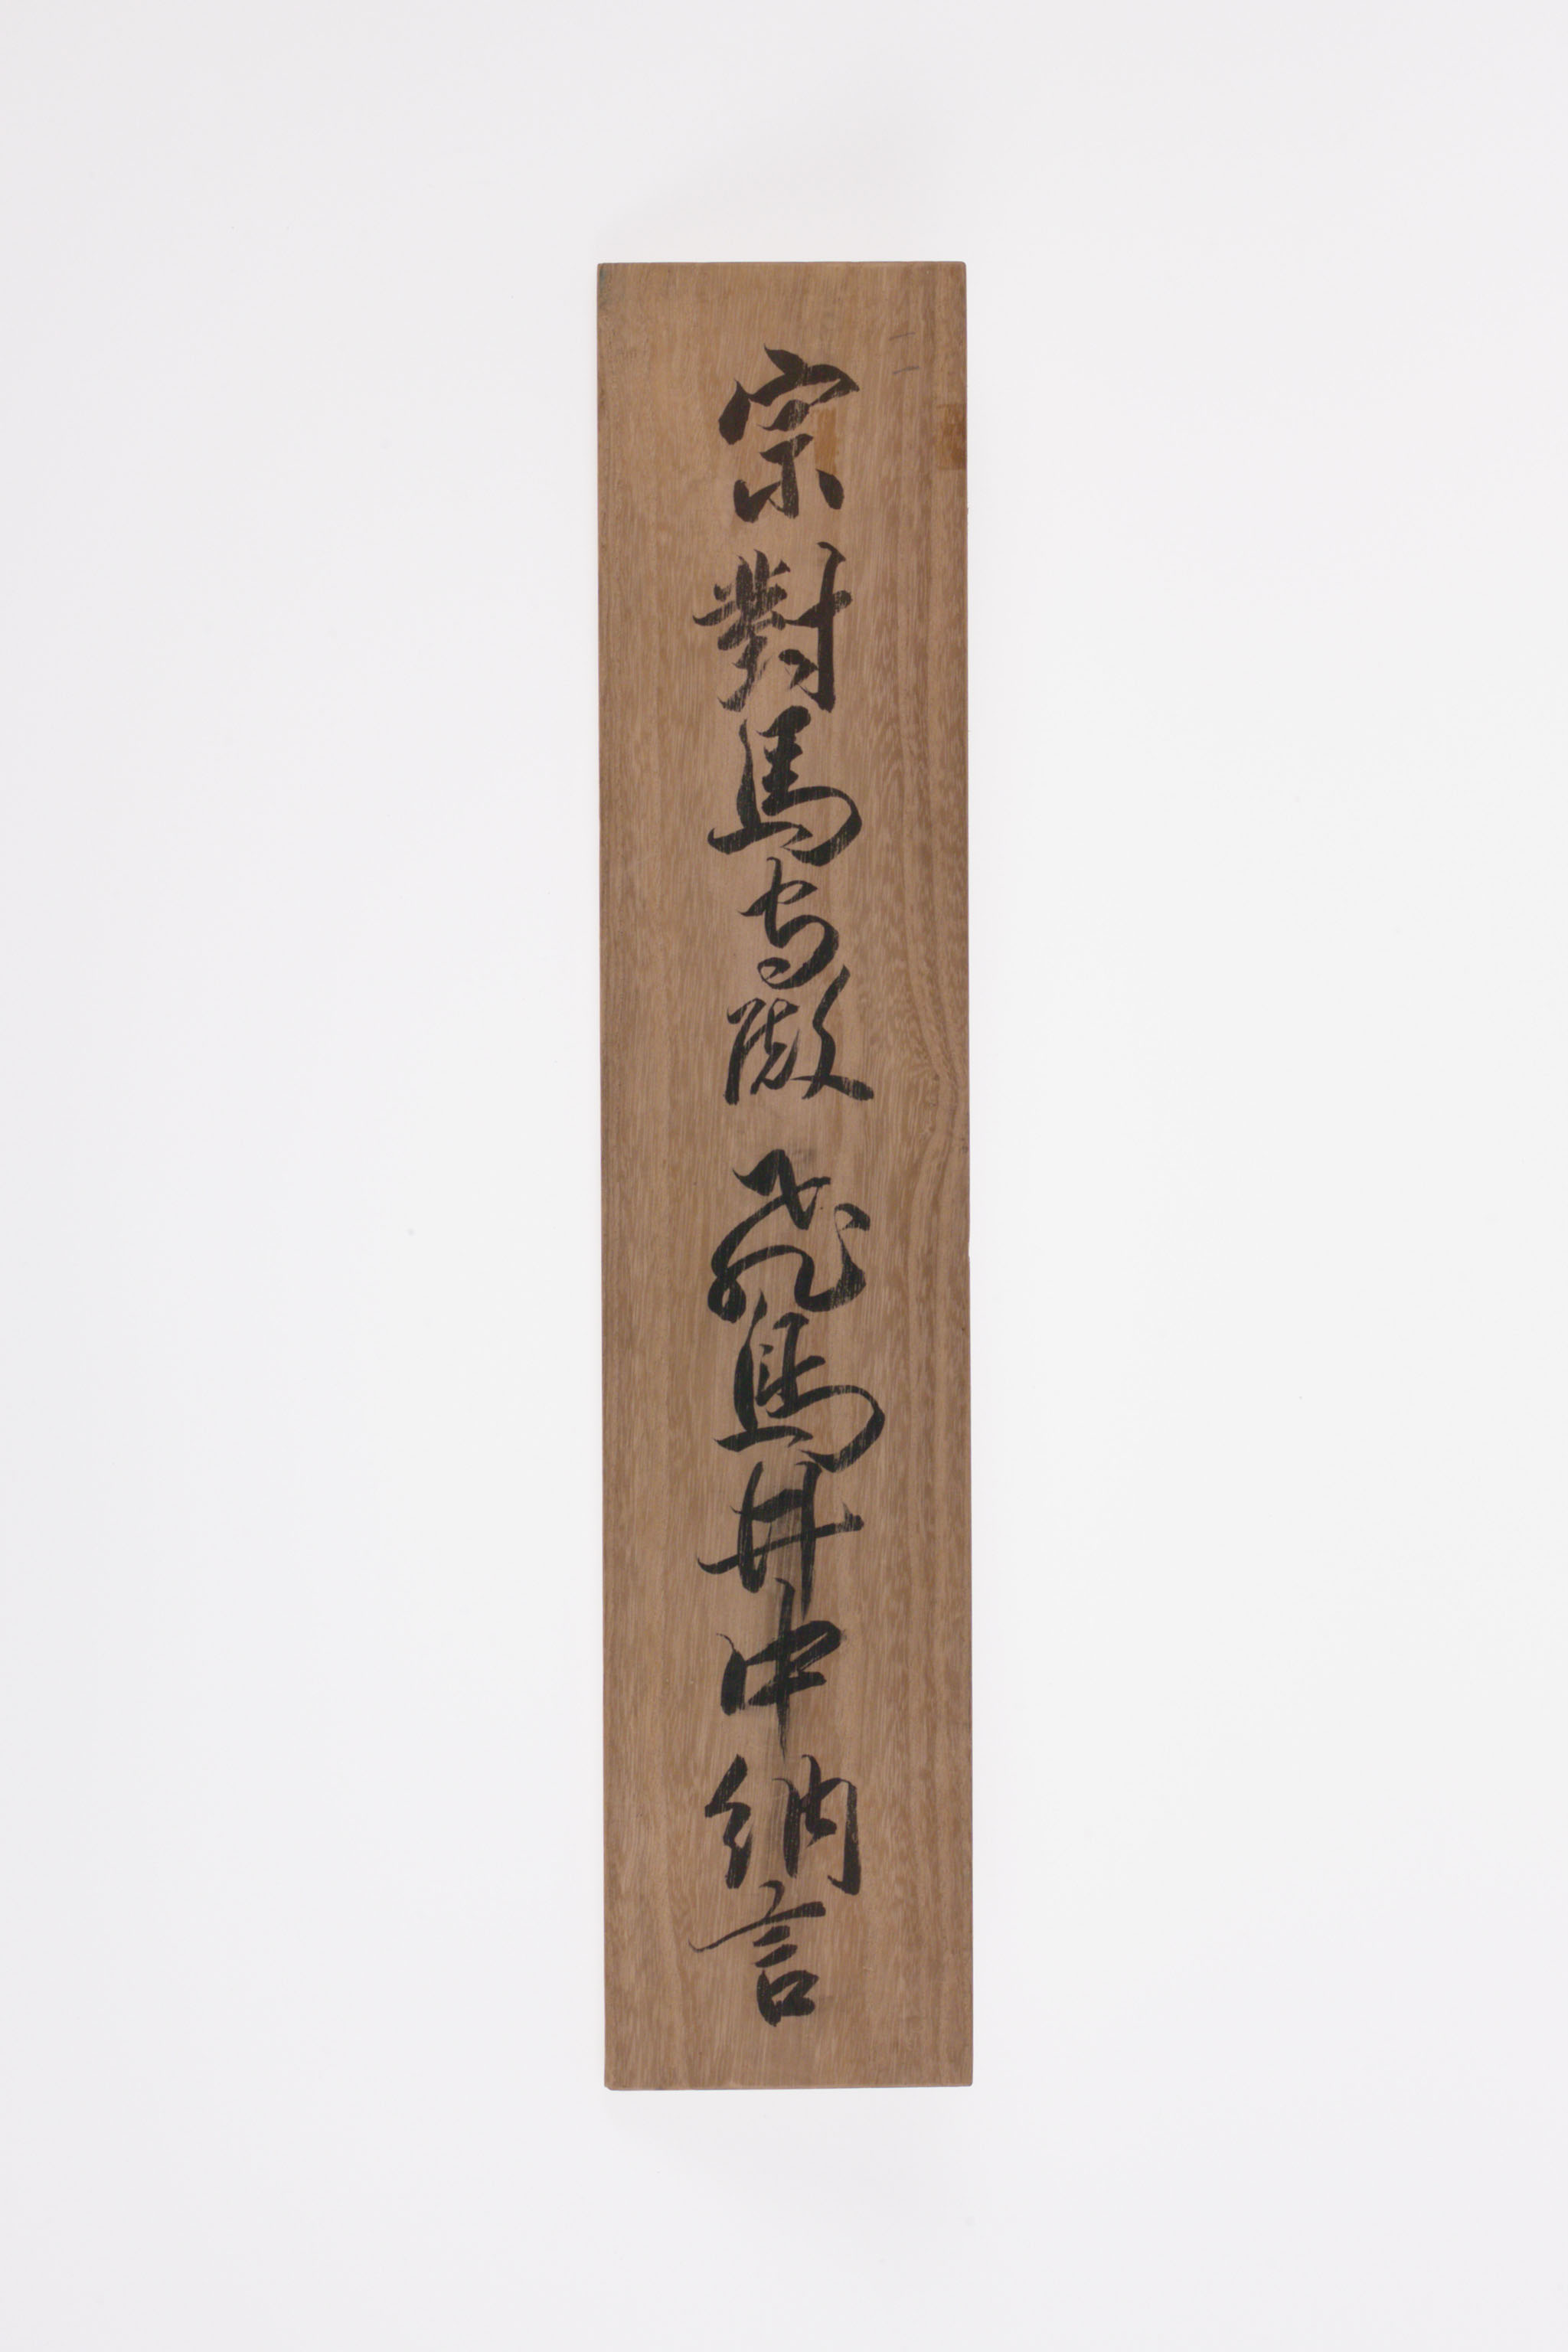 宗對馬守殿 飛鳥井中納言